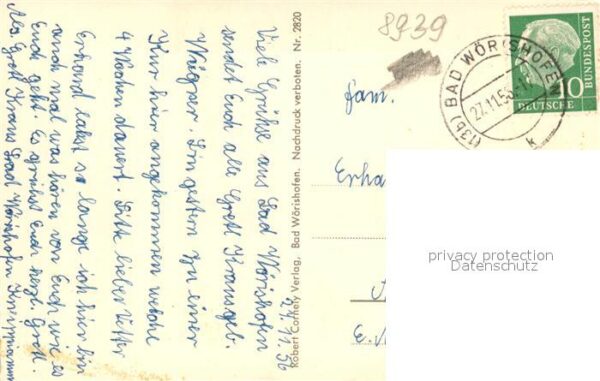 24.11.56
Viele Grüße aus Bad Wörishofen
sendet Euch alle Gretl Kraus geb.
Wagner. Bin gestern zu einer
Kur hier angekommen welche
4 Wochen dauert. Bitte lieber Vetter
Erhard laßt so lange ich hier bin
auch mal was hören von Euch wie es
Euch geht. Es grüßt Euch herzl. Gretl.
Gretl Kraus Bad Wörishofen
Robert Cornely Verlag, Bad Wörishofen. Nachdruck verboten. Nr. 2820
8939
Fam.
Erha
E.
(13b) BAD WÖRISHOFEN
27.11.56
k
10
DEUTSCHE
BUNDESPOST
privacy protection
Datenschutz